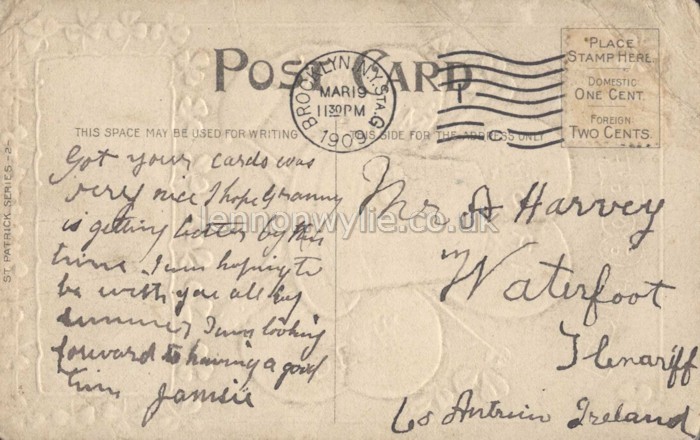 POST CARD
PLACE
STAMP HERE
DOMESTIC
ONE CENT.
FOREIGN
TWO CENTS.
BROOKLYN, N.Y. STA. G.
MAR 19
11 30 PM
1909
THIS SPACE MAY BE USED FOR WRITING
THIS SIDE FOR THE ADDRESS ONLY
ST. PATRICK SERIES-2-
Got your cards was
very nice I hope Granny
is getting better by this
time. I am hoping to
be with you all by
summer I am looking
forward to having a good
time Jamsie
Mr A Harvey
Waterfoot
Glenariff
Co Antrim Ireland
lennonwylie.co.uk